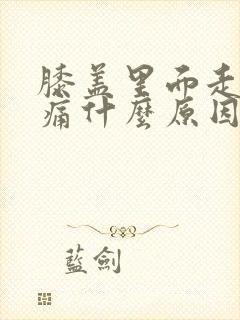 膝盖里而走
痛什麼原因
藍劍